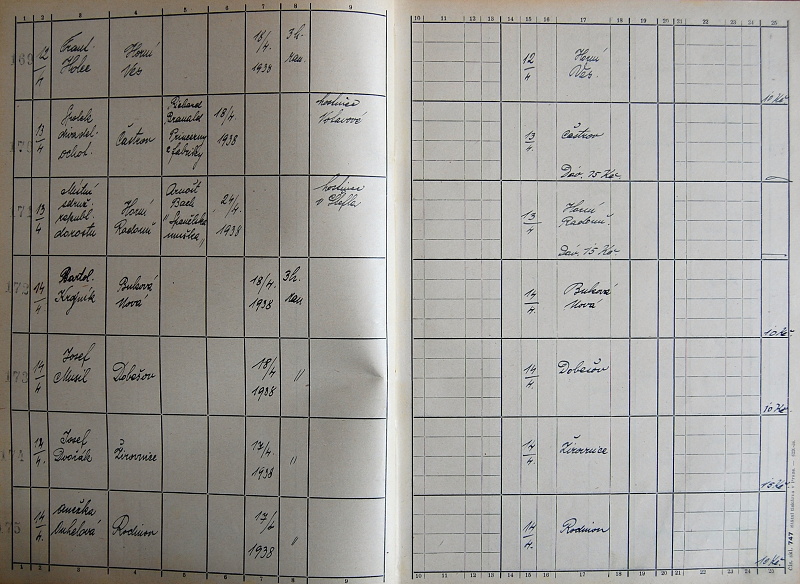 1 2 3 4 5 6 7 8 9
169 12/4 Frant. Holec Horní Ves 18/4. 1938 3h. ran.
13/4 Častrov 18/4 1938 hostinec
13/4 Místní sdruž. republ. dorostu Horní Radouň Arnošt Bach "Španělská muška" 24/4. 1938 hostinec u Štefla
172 14/4 Bartol. Krejník Buková Nová 18/4. 1938 3h. ran.
173 14/4 Josef Musil Dobešov 18/4 1938 "
14/4. Josef Dvořák Žirovnice 17/4. 1938 "
14/4. Anežka Rodinov 17/4 1938 "
1 2 3 4 5 6 7 8 9
10 11 12 13 14 15 16 17 18 19 20 21 22 23 24 25
12/4 Horní Ves. 10 Kč
13/4. Častrov
Dáv. 15 Kč
13/4 Horní Radouň.
Dáv. 15 Kč
14/4. Buková Nová 10 Kč
14/4. Dobešov 10 Kč
14/4. Žirovnice 10 Kč
14/4. Rodinov 10 Kč
10 11 12 13 14 15 16 17 18 19 20 21 22 23 24 25
Čís. skl. 747